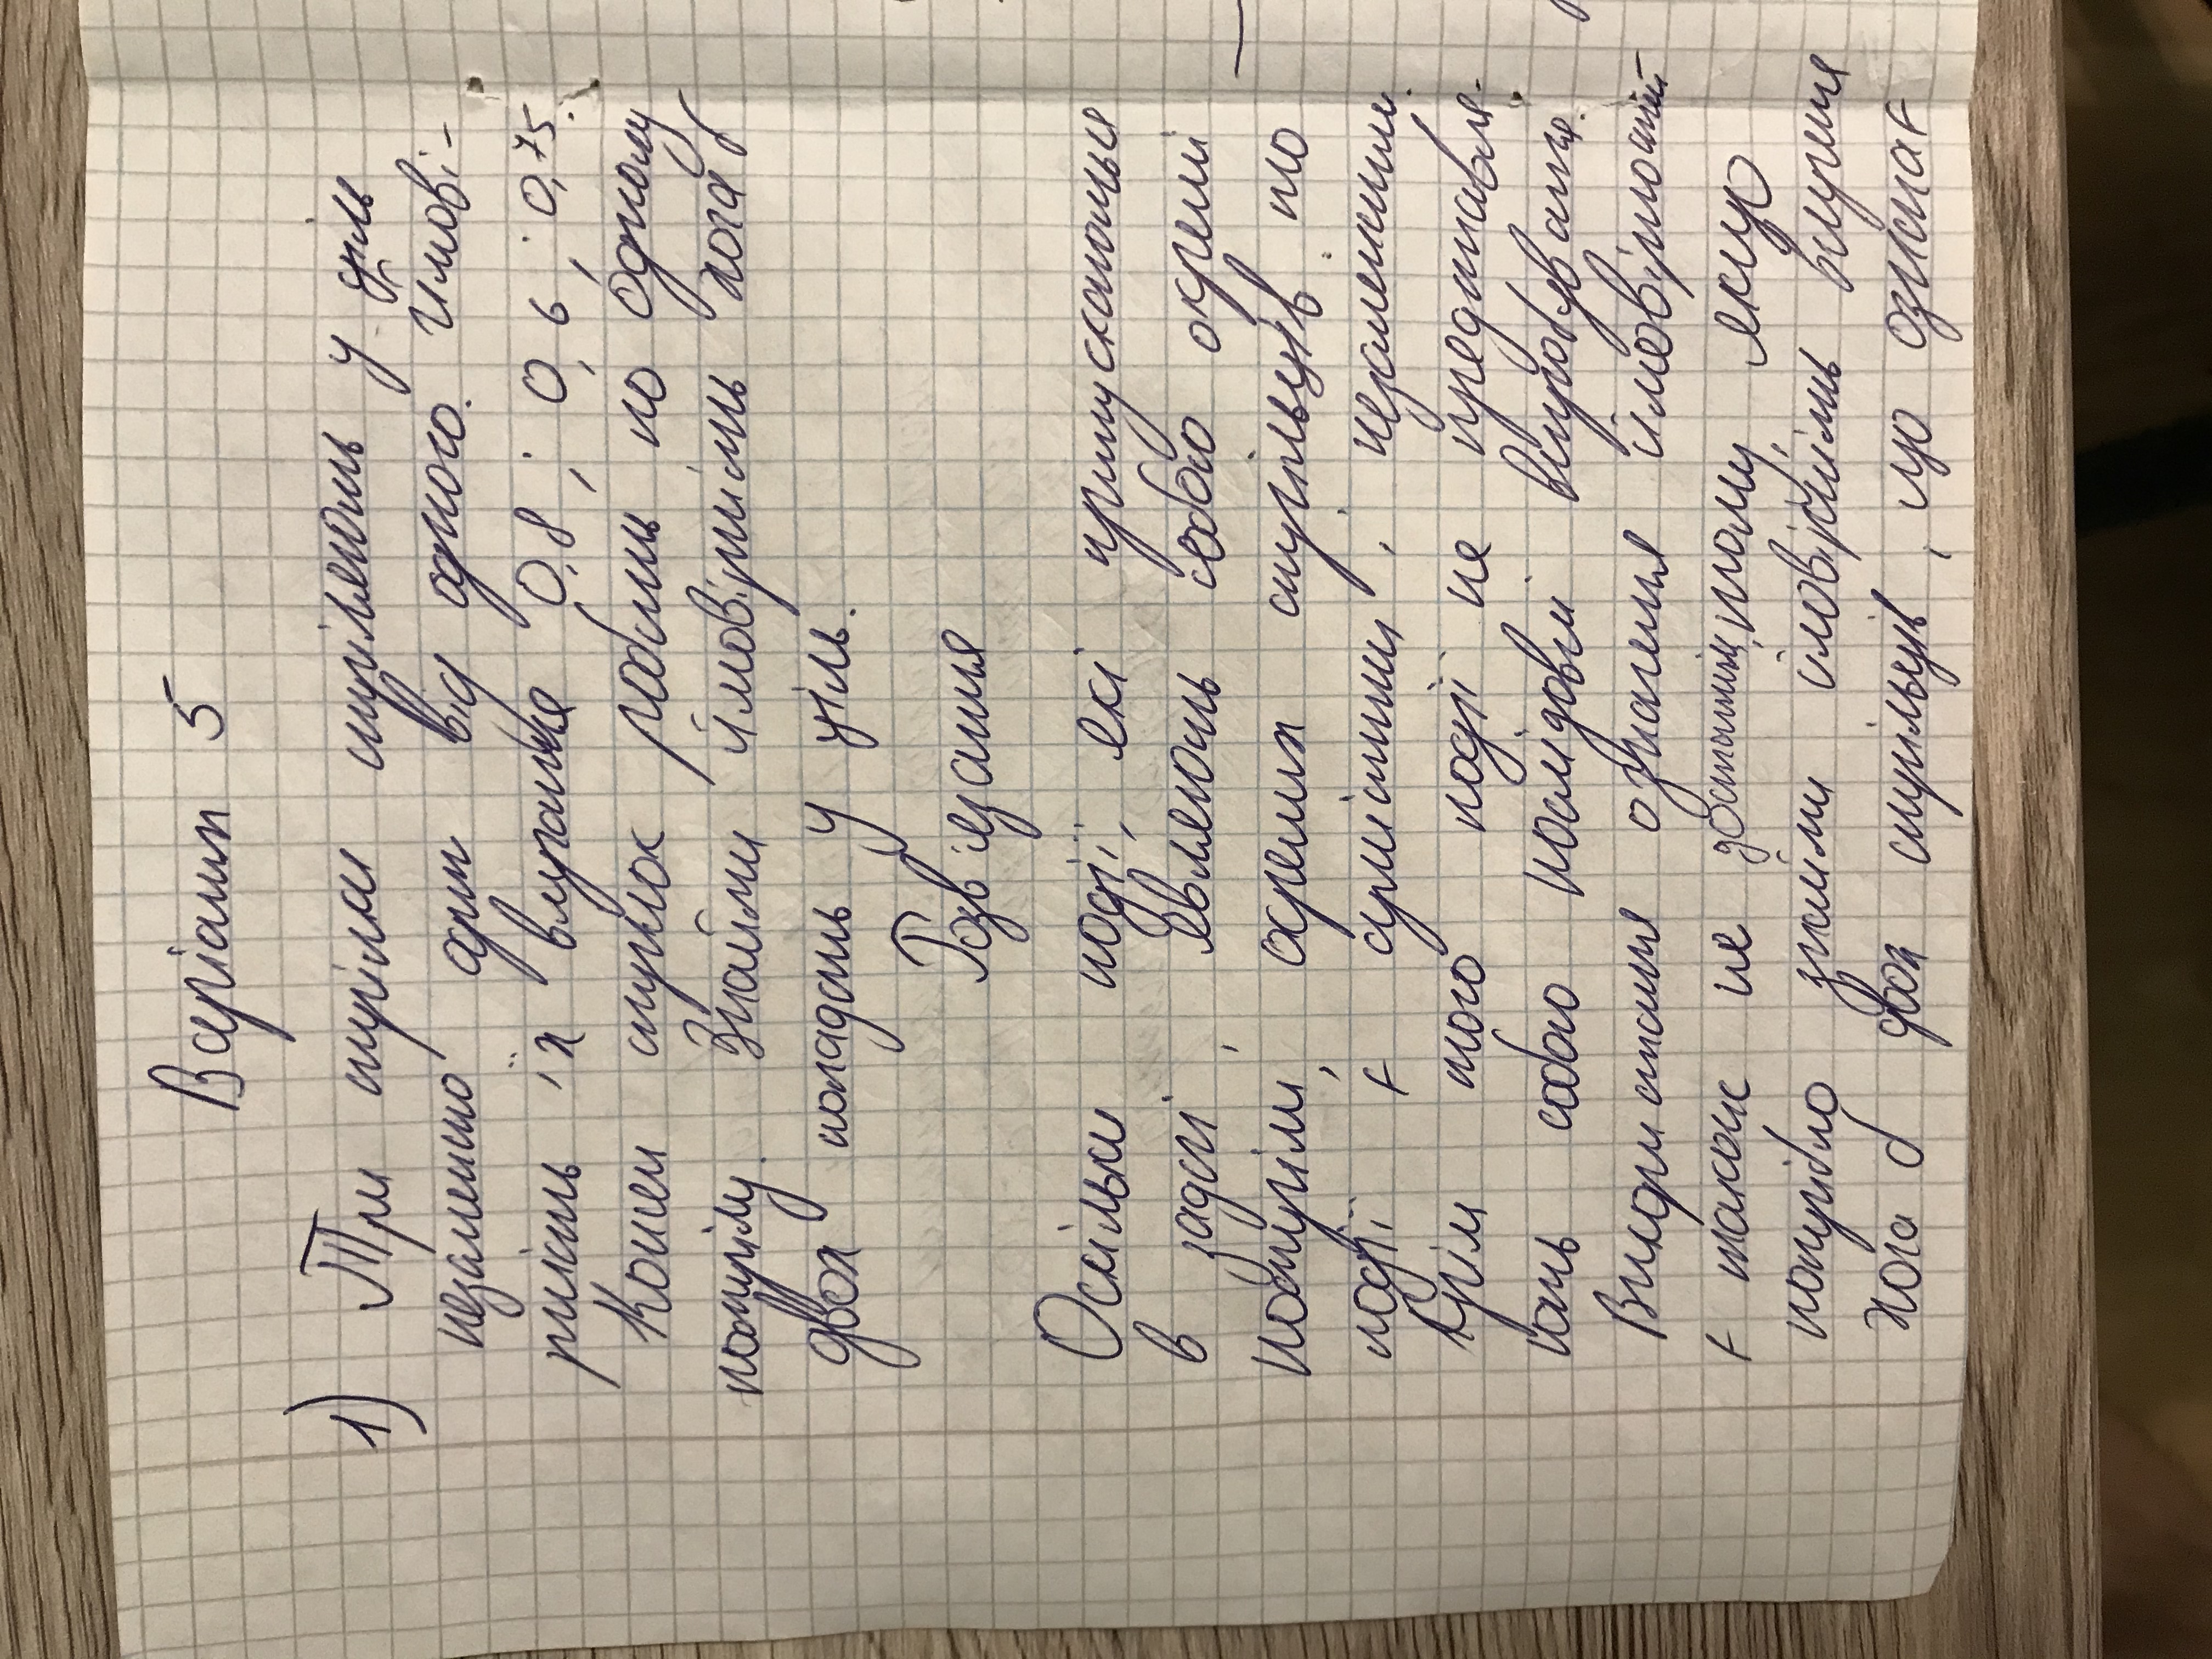 Варіант 5
1) Три стрілки стріляють у ціль
незалежно один від одного. Ймові-
рність їх влучання 0,8 ; 0,6 ; 0,75.
Кожен стрілок робить по одному
пострілу. Знайти ймовірність хоча б
двох попадань у ціль.
Розв'язання
Оскільки події, які припускаються
в задачі, являють собою окремі
постріли, окремих стрільців, то
події є сумісними і незалежними.
Крім того події не представля-
ють собою послідовні випробування.
Використання означення ймовірностей
є також не достатнім, тому, якщо
потрібно знайти ймовірність влучення
хоча б двох стрільців, що означає